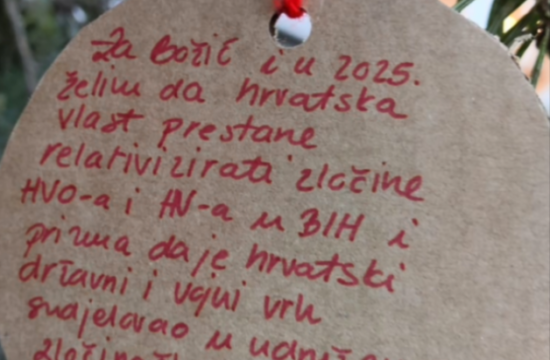 Za Božić i u 2025.
želim da hrvatska
vlast prestane
relativizirati zločine
HVO-a i HV-a u BIH i
prizna da je hrvatski
državni i vojni vrh
sudjelovao u